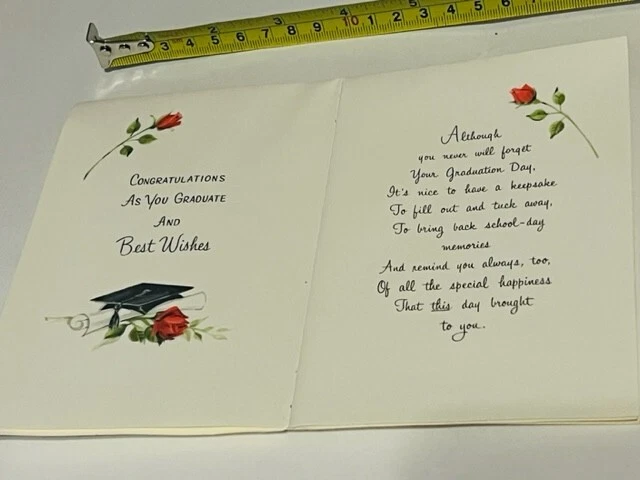 3 4 5 6 7 8 9 10 1 2 3 4 5 6 7
2 3 4 5
CONGRATULATIONS
AS YOU GRADUATE
AND
Best Wishes
Although
you never will forget
Your Graduation Day,
It's nice to have a keepsake
To fill out and tuck away,
To bring back school-day
memories
And remind you always, too,
Of all the special happiness
That this day brought
to you.